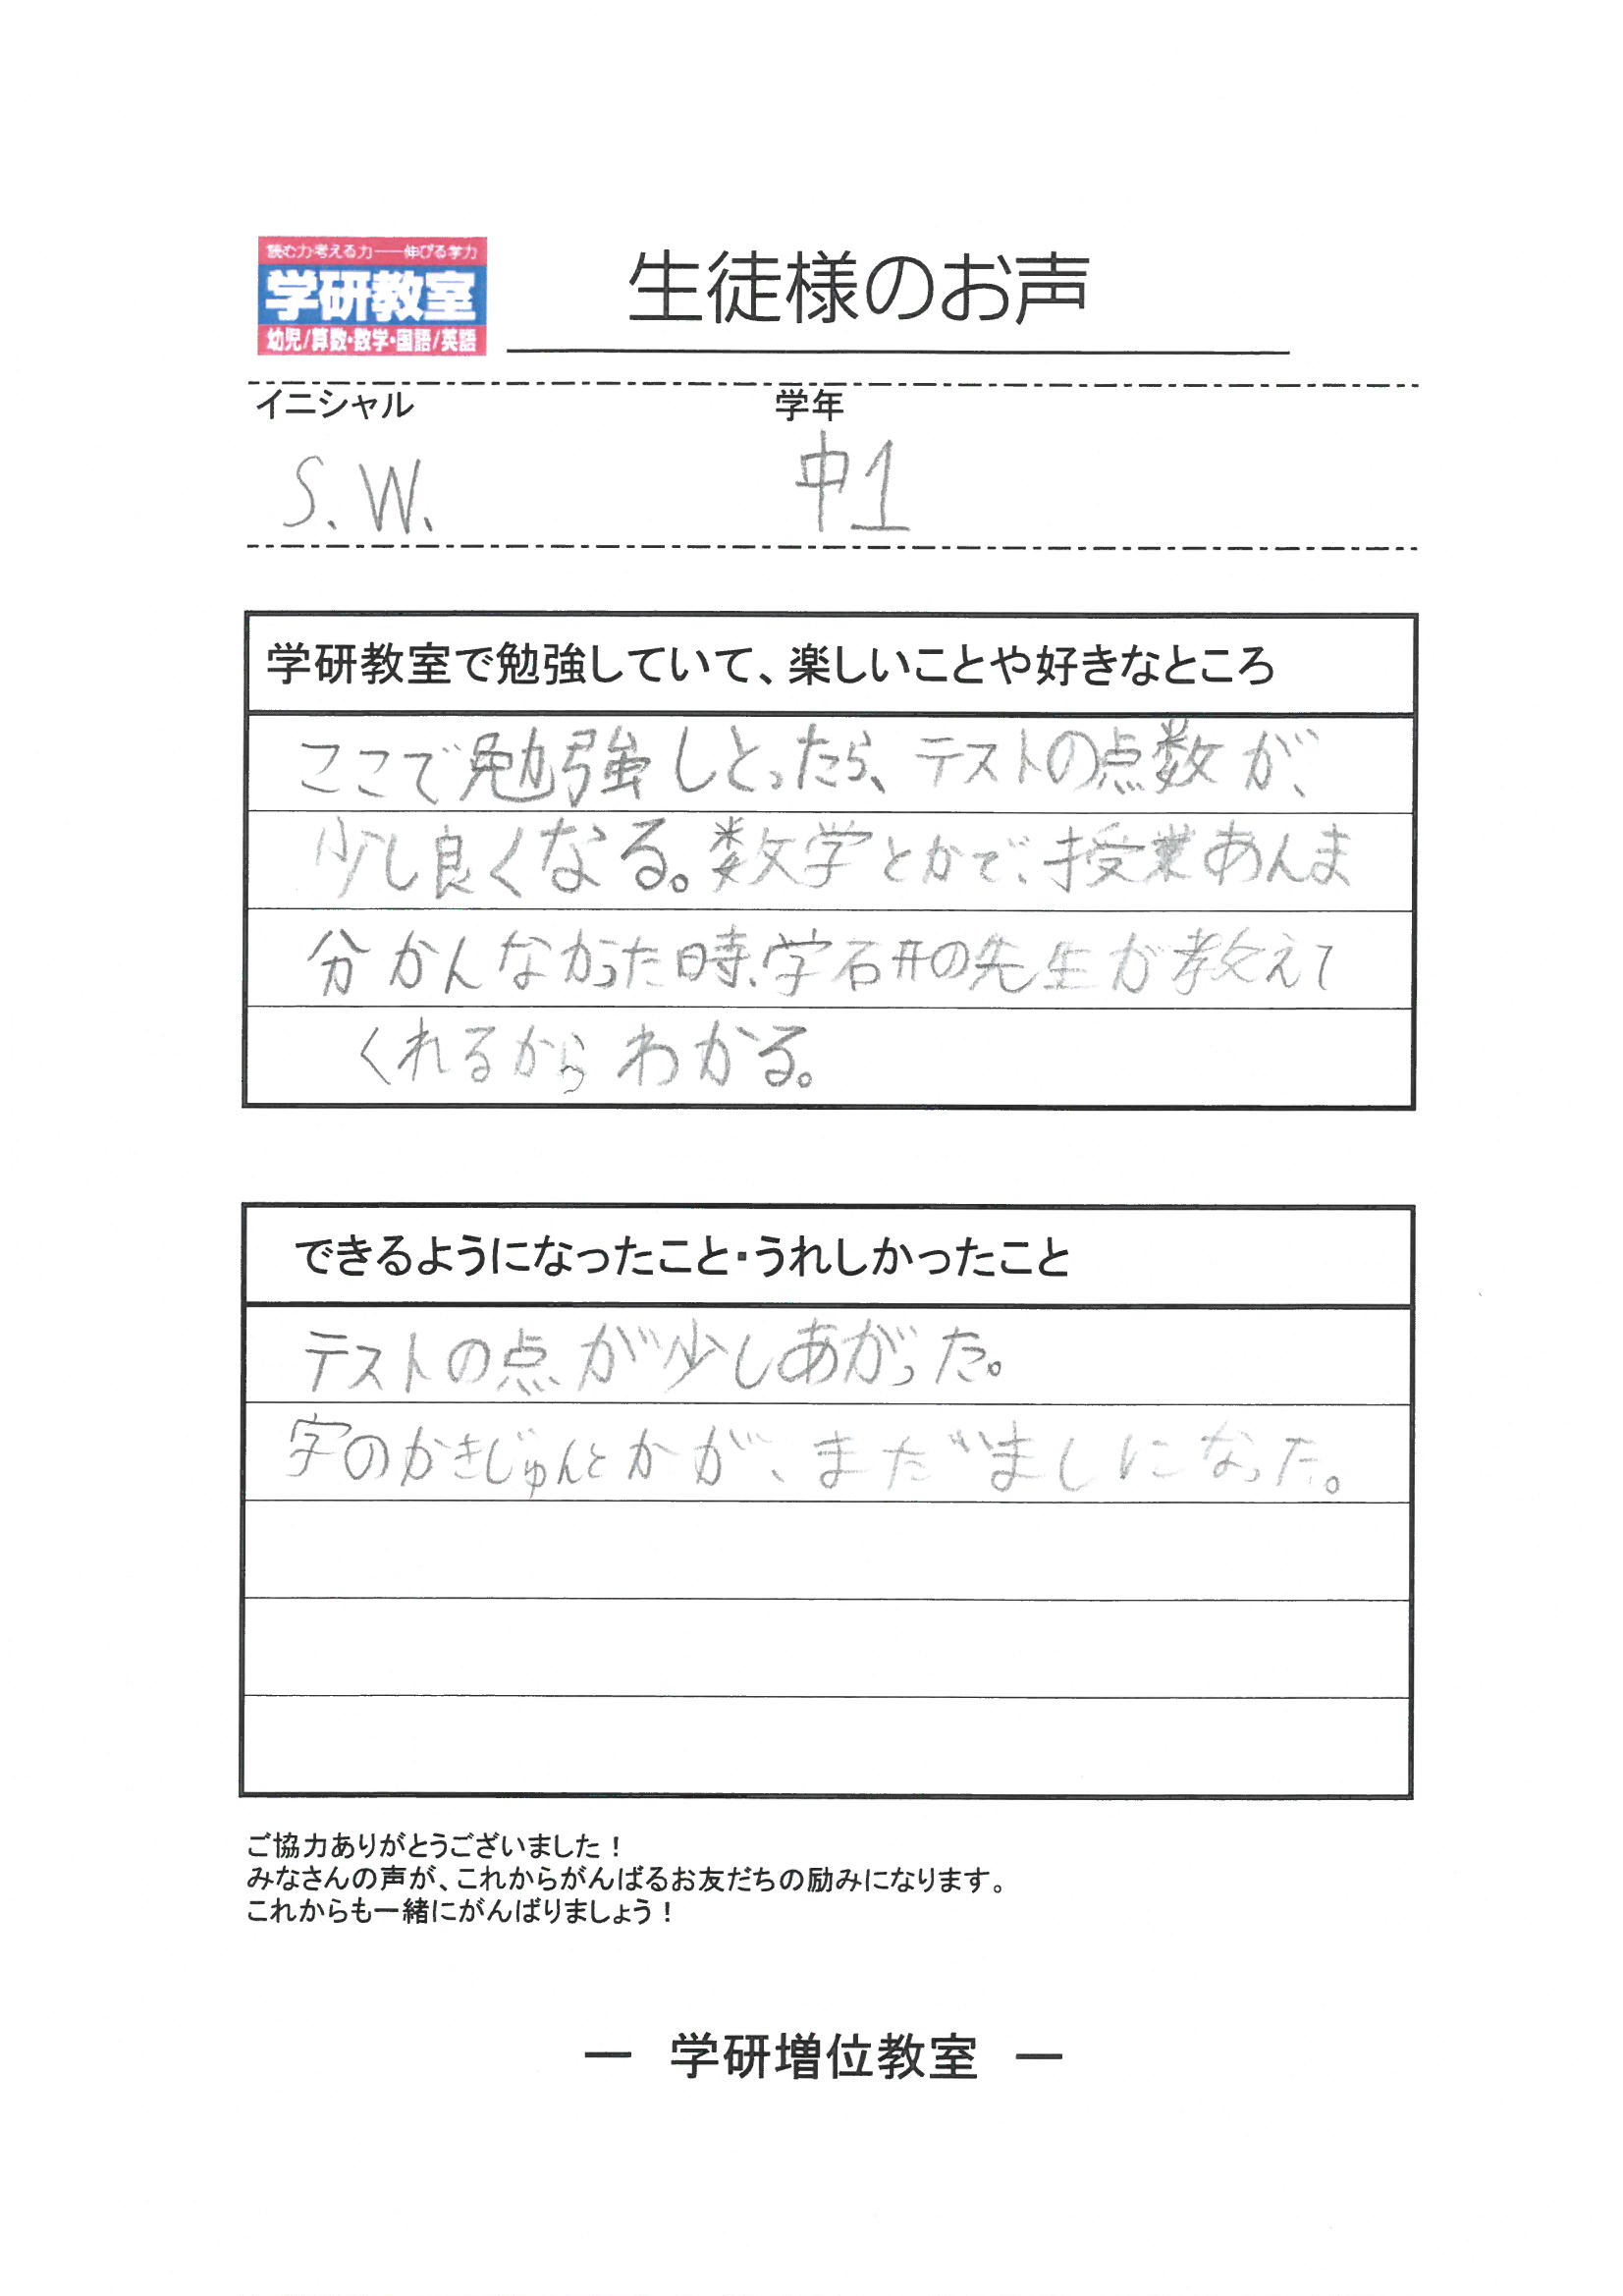 読む力考える力――伸びる学力
学研教室
幼児/算数・数学・国語/英語
生徒様のお声
イニシャル
学年
S.W.
中1
学研教室で勉強していて、楽しいことや好きなところ
ここで勉強しとったら、テストの点数が、
少し良くなる。数学とかで、授業あんま
分かんなかった時、学研の先生が教えて
くれるからわかる。
できるようになったこと・うれしかったこと
テストの点が少しあがった。
字のかきじゅんとかが、まだましになった。
ご協力ありがとうございました！
みなさんの声が、これからがんばるお友だちの励みになります。
これからも一緒にがんばりましょう！
― 学研増位教室 ―